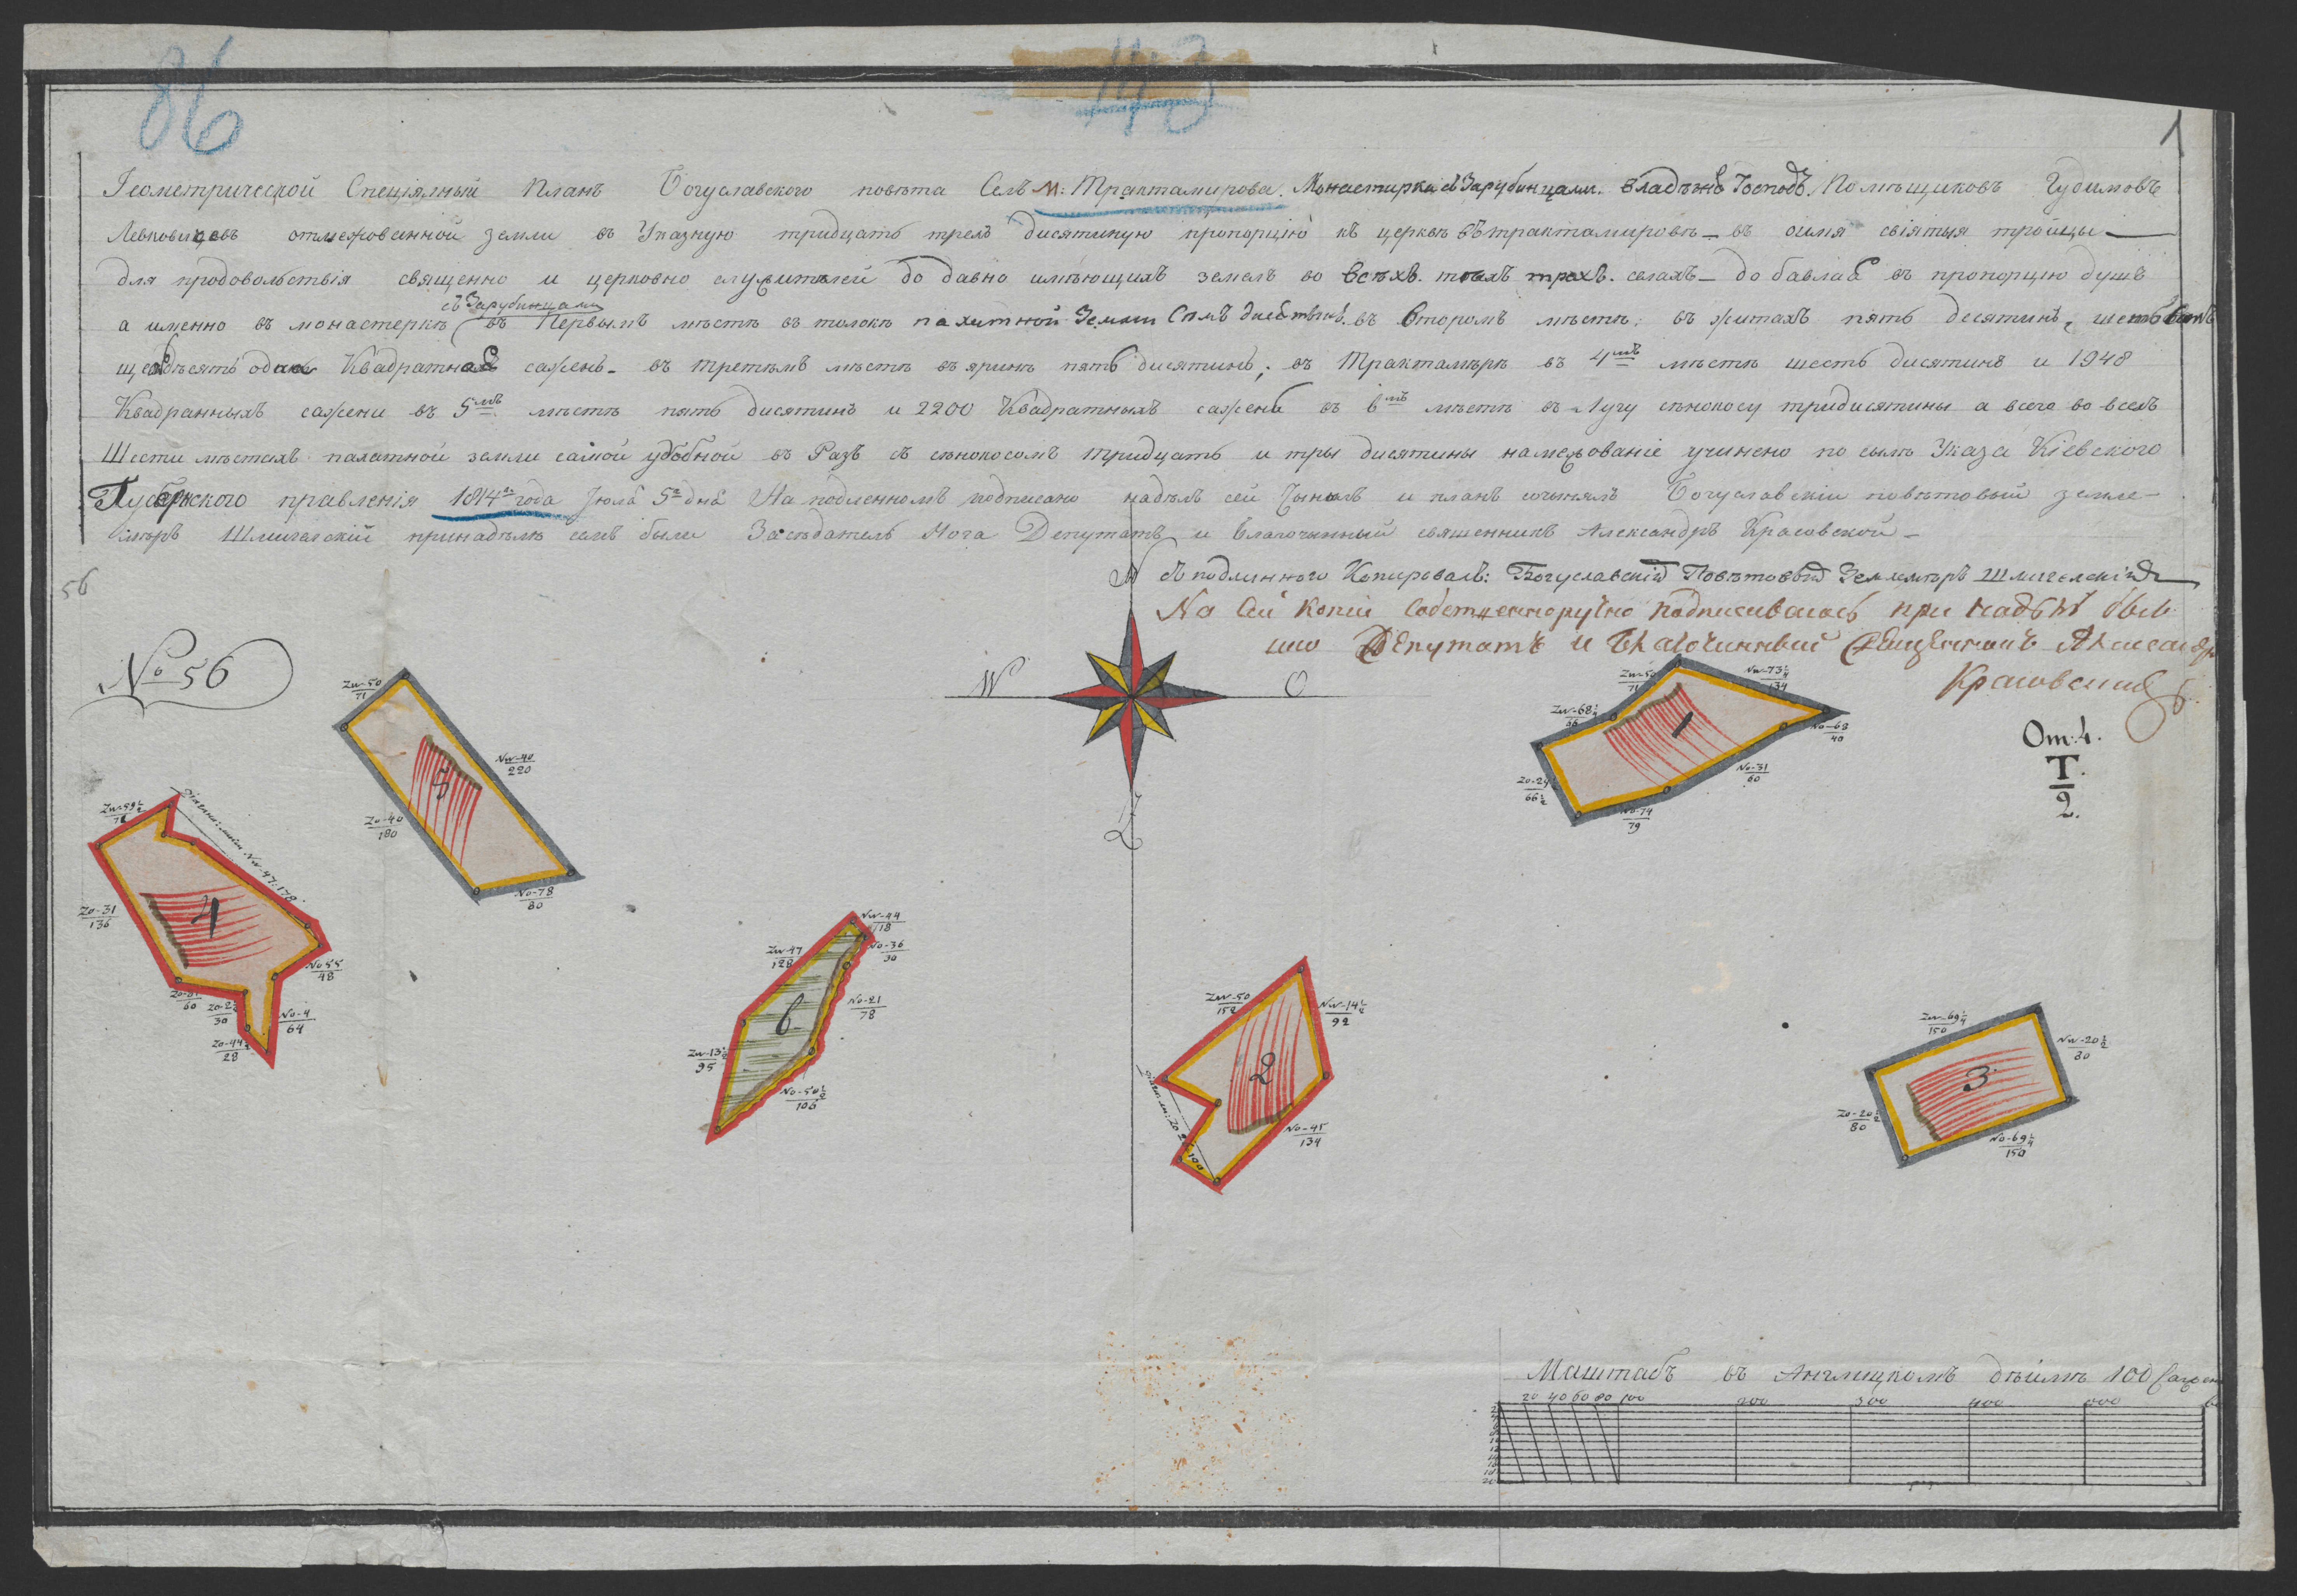 86
143
1
Геометрической Спеціялный Планъ Богуславского повѣта Селъ М: Трактамирова. Монастирка съ Зарубинцами. владѣнія Господъ. Помѣщиковъ Гудимовъ
Левковицовъ отмежованной земли въ Указную тридцать трехъ дисятиную пропорцію къ церквѣ въ трактамировѣ въ оимя святыя тройцы
для продовольствія священно и церковно служителей до давно имѣющихъ земель во всѣхъ. тѣхъ трехъ. селахъ до бавлая въ пропорцію душъ
съ Зарубинцами
а именно въ монастеркѣ въ Первымъ мѣстѣ въ толокѣ пахитной Земли Семъ дисятинъ. въ второмъ мѣстѣ. въ житахъ пять десятинъ,
одна Квадратная сажень въ третьемъ мѣстѣ въ яринѣ пять дисятинъ; въ Трактамирѣ въ 4мъ мѣстѣ шесть дисятинъ и 1948
Квадранныхъ сажени въ 5мъ мѣстѣ пять дисятинъ и 2200 Квадратныхъ сажень въ 6мъ мѣстѣ въ Лугу сѣнокосу тридисятины а всего во всехъ
Шести мѣстахъ пахатной земли самой удобной въ Разъ съ сѣнокосомъ тридцать и тры дисятины намежованіе учинено по силѣ Указа Кіевского
Губернского правленія 1814го года Іюля 5го дня На подленномъ подписано надѣлъ сей Чынилъ и планъ сочинялъ Богуславскій повѣтовый земле-
мѣръ Шмигелскій принадѣлѣ семъ были Засѣдатель Нога Депутатъ и Благочынный священникъ Александръ Красовской
56
N
Съ подлинного Копировалъ: Богуславскій Повѣтовый Землемѣръ Шмигелскій
На сей копіи собственноручно подписиваюсь при надѣлѣ был
шій Депутатъ и Благочинный Священникъ Александръ
Красовский
No 56
W
O
От: 4.
Т.
2.
Zw-50
71
Nw-40
220
5
Zo-40
180
No-78
80
Zw-50
71
Nw-73¼
134
Zw-68¼
56
1
No-68
40
No-31
60
Zo-24
66½
No-74
79
Zw-59½
76
Nw-47:178
4
Zo-31
136
No 55
48
60
30
No-4
64
Zo-44
28
Zw-47
128
Nw-44
18
No-36
30
6
No-21
78
Zw-13½
95
No-50½
106
Zw-50
152
Nw-14½
92
2
100
No-45
134
Zw-69¼
150
Nw-20½
80
3
Zo-20½
80
No-69¼
150
Маштабъ въ Англицкомъ дѣймѣ 100 Сажень
20 40 60 80 100 200 300 400 500